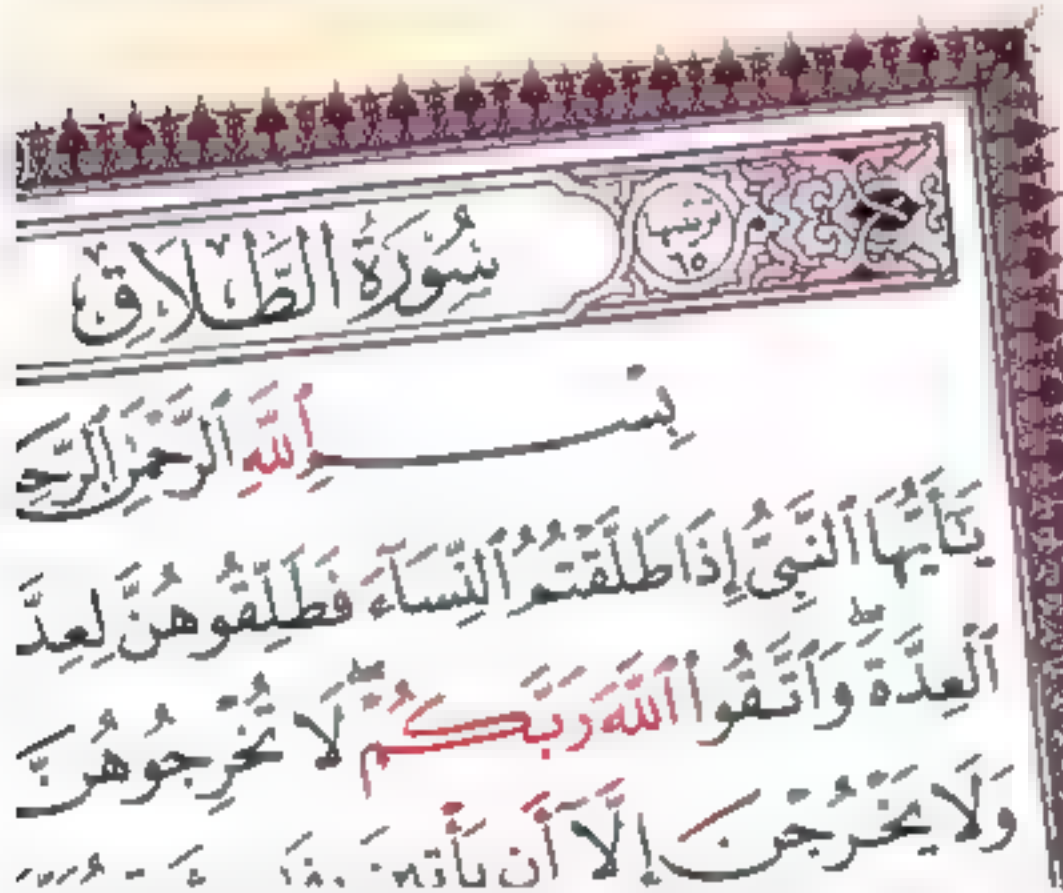 ترتيبها
٦٥
سُورَةُ الطَّلَاقِ
بِسْـــــــمِ ٱللَّهِ ٱلرَّحْمَٰنِ
يَٰٓأَيُّهَا ٱلنَّبِىُّ إِذَا طَلَّقْتُمُ ٱلنِّسَآءَ فَطَلِّقُوهُنَّ
ٱلْعِدَّةَ ۖ وَٱتَّقُوا۟ ٱللَّهَ رَبَّكُمْ ۖ لَا تُخْرِجُوهُنَّ
وَلَا يَخْرُجْنَ إِلَّآ أَن يَأْتِينَ